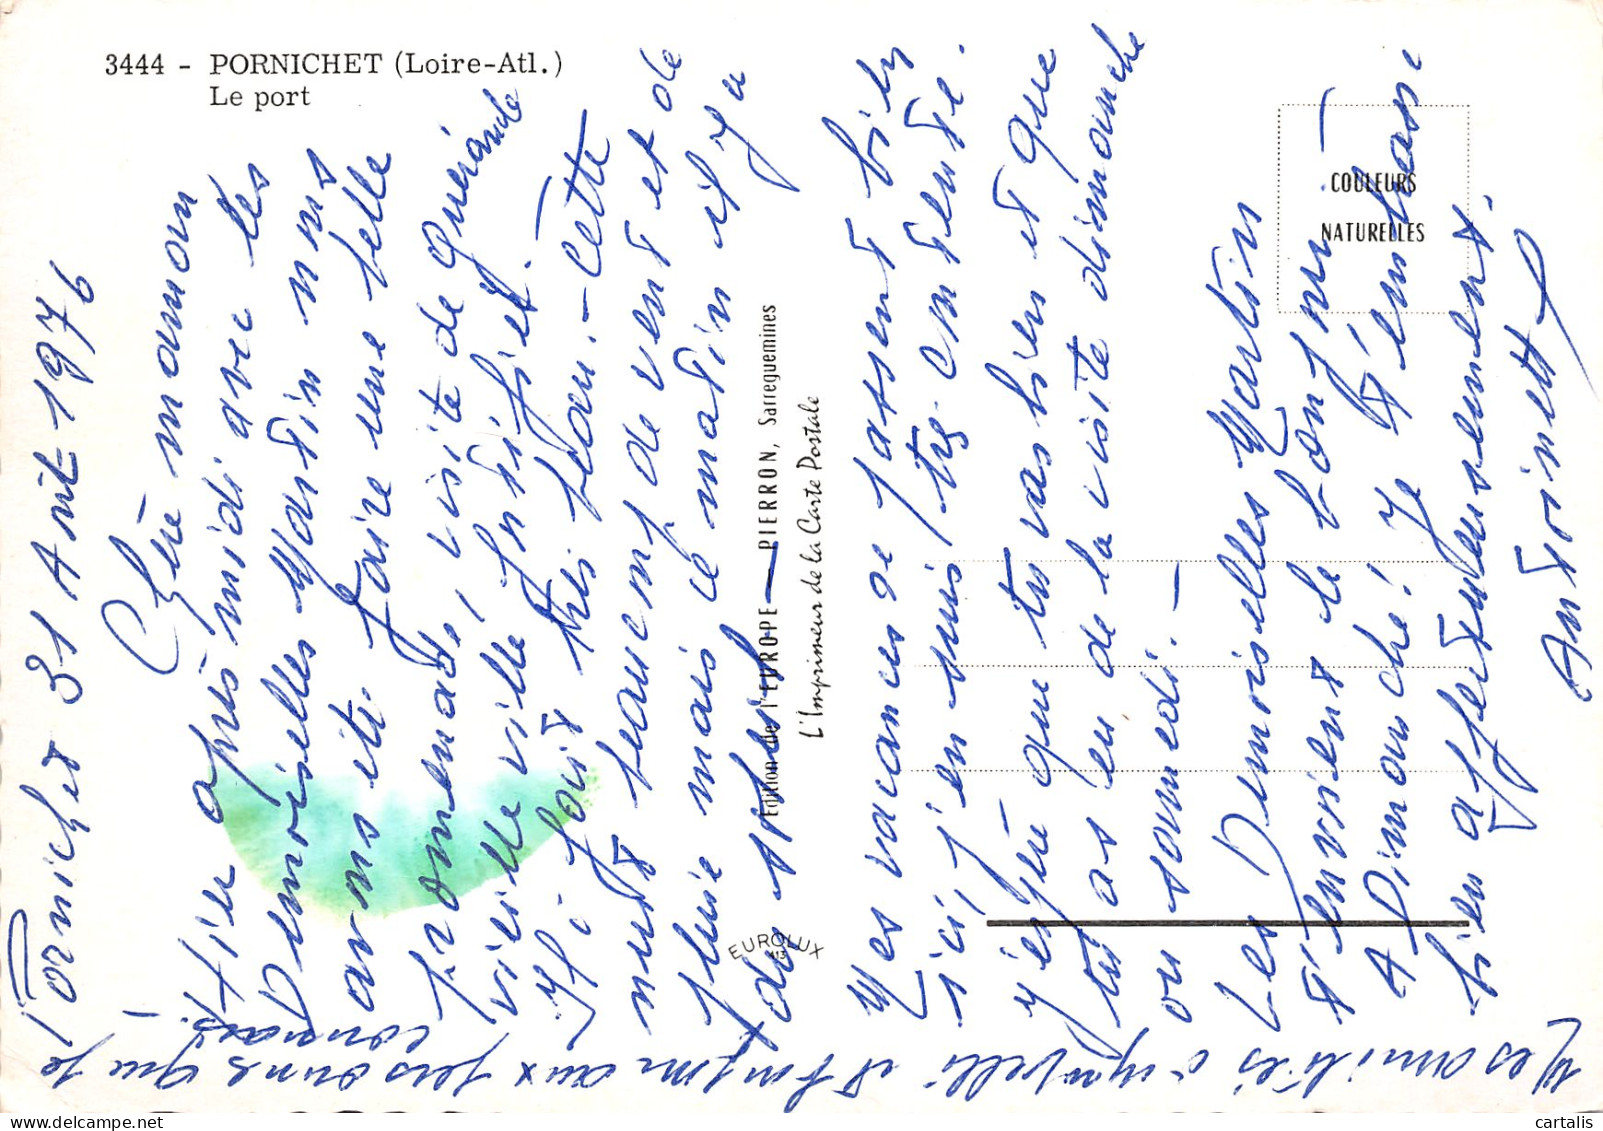 3444 - PORNICHET (Loire-Atl.)
Le port
Pornichet 31 Août 1976
Chère maman
Hier après midi avec les
Demoiselles Martin nous
avons été faire une belle
promenade, visite de Guérande
vieille ville fortifiée.
Il fait très beau. - cette
nuit beaucoup de vent et de
pluie mais ce matin il y a
du soleil.
Mes vacances se passent bien
ici, j'en suis très contente.
J'espère que tu vas bien et que
tu as eu de la visite dimanche
ou samedi. -
Les Demoiselles Martin
t'envoient le bonjour. -
A Dimanche! Je t'embrasse
bien affectueusement.
Antoinette
Mes amitiés à et bonjour aux personnes que je
connais!
Edition de l'EUROPE - PIERRON, Sarreguemines
L'Imprimeur de la Carte Postale
EUROLUX
COULEURS
NATURELLES
cartalis
delcampe.net